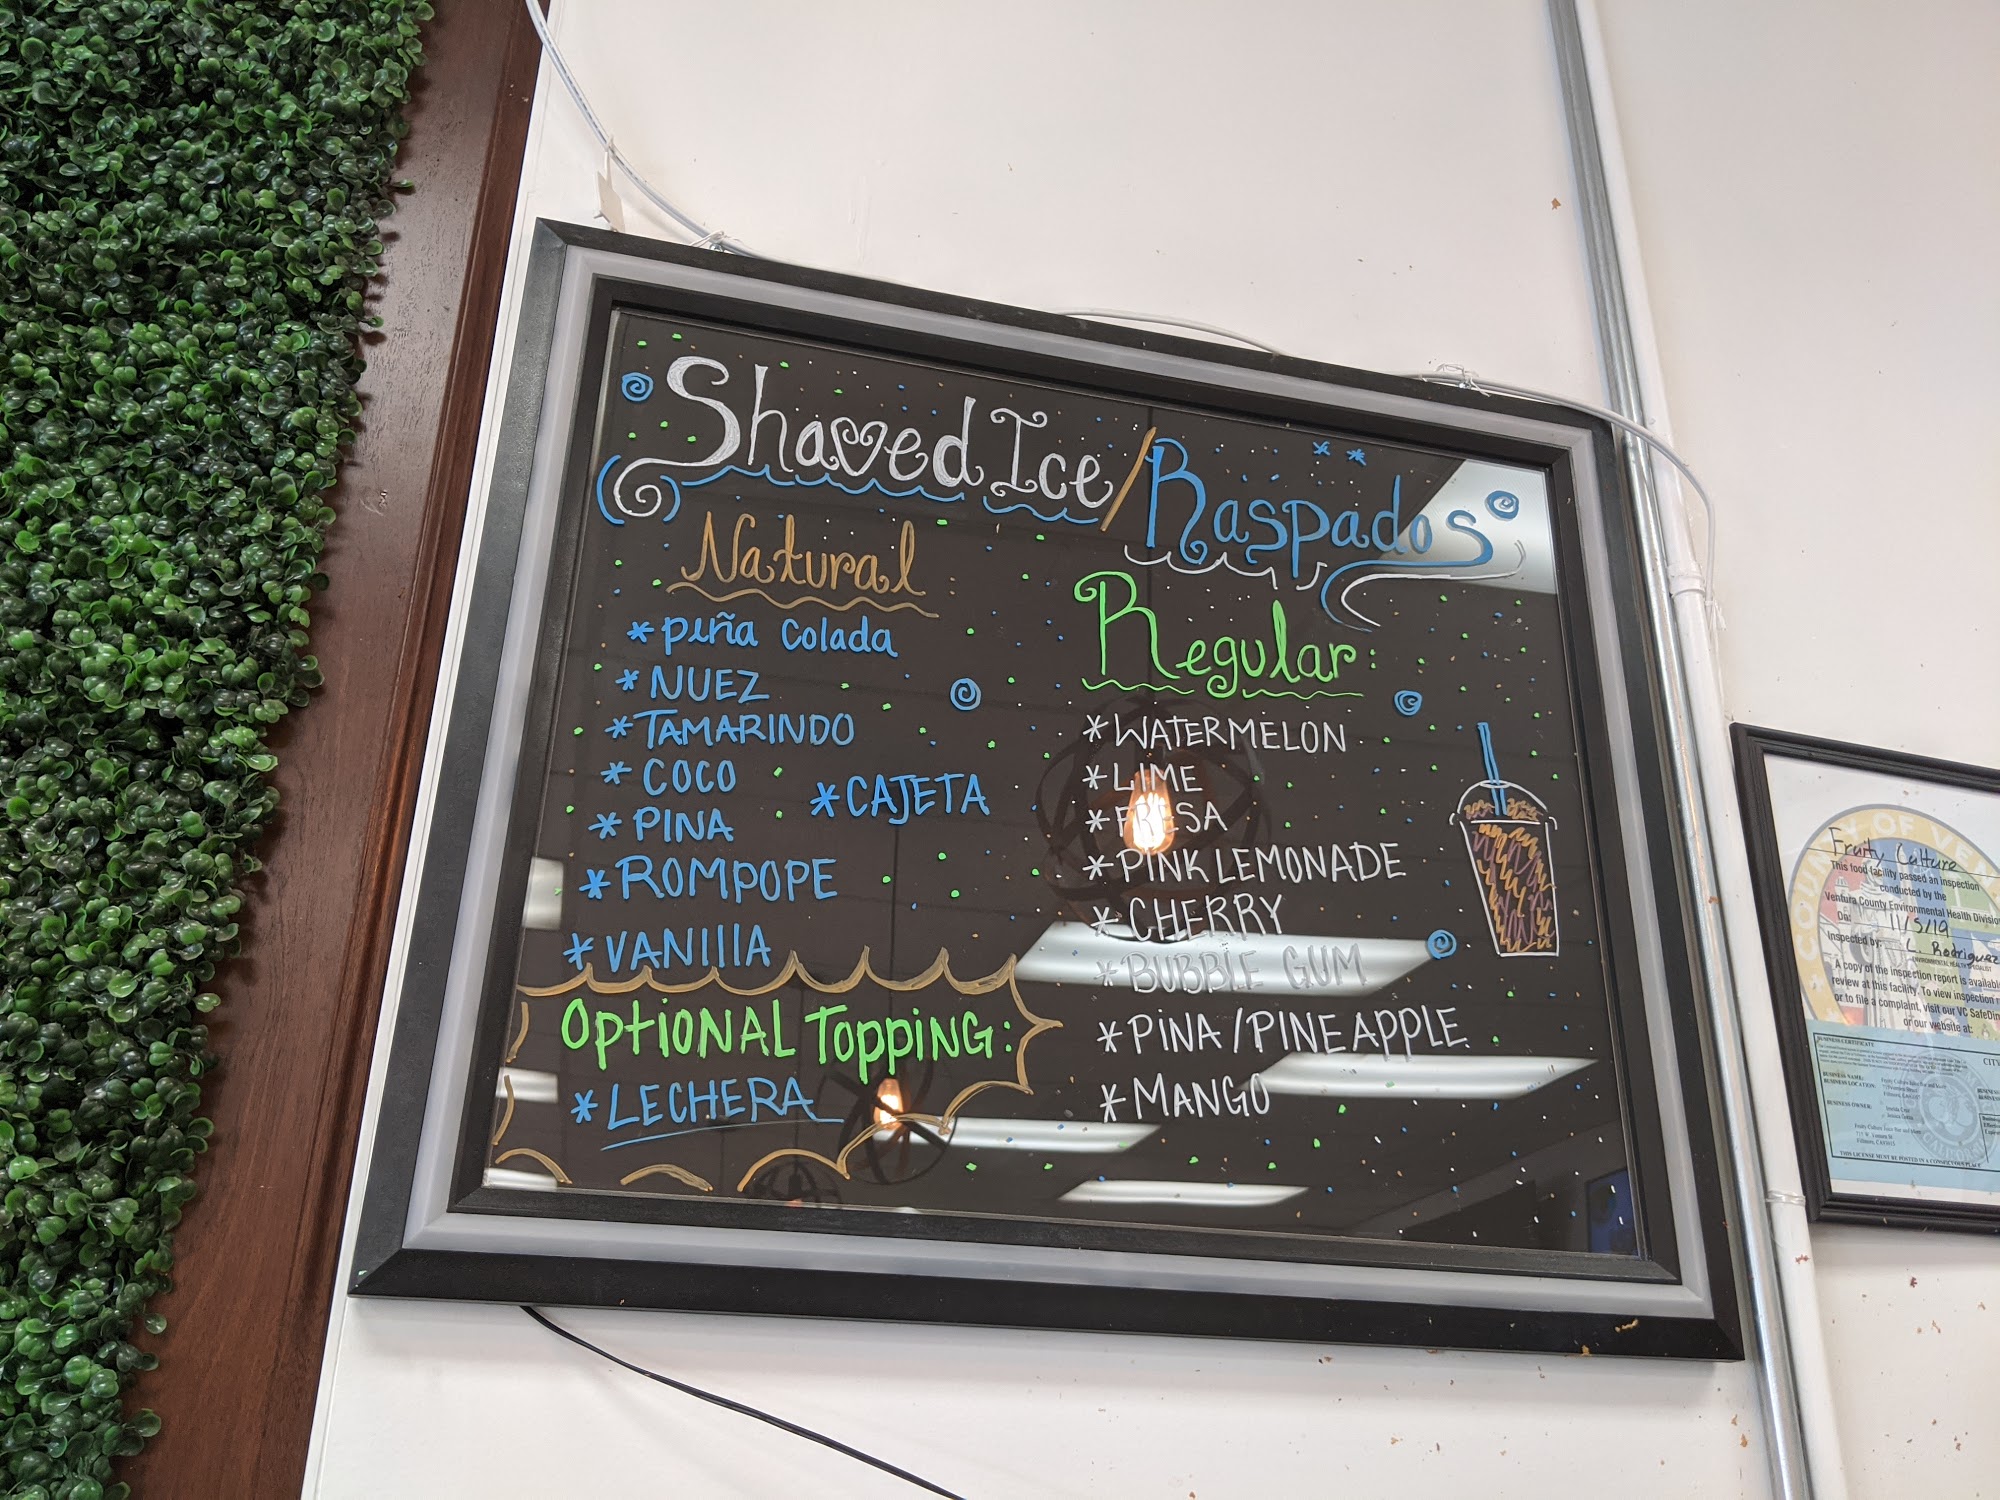 Shaved Ice / Raspados
Natural
* piña colada
* NUEZ
* TAMARINDO
* COCO
* CAJETA
* PINA
* ROMPOPE
* VANIllA
OptIONAL TOppING:
* LECHERA
Regular:
* WATERMELON
* LIME
* FRESA
* PINK LEMONADE
* CHERRY
* BUBBLE GUM
* PINA / PINEAPPLE
* MANGO
COUNTY OF VEN
Fruity Culture
This food facility passed an inspection
conducted by the
Ventura County Environmental Health Division
On: 11/5/19
Inspected by: L. Rodriguez
ENVIRONMENTAL HEALTH SPECIALIST
A copy of the inspection report is available
review at this facility. To view inspection
or to file a complaint, visit our VC SafeDin
or our website at:
BUSINESS CERTIFICATE
CITY
BUSINESS NAME:
BUSINESS LOCATION:
BUSINESS OWNER:
Fruity Culture Juice Bar and More
THIS LICENSE MUST BE POSTED IN A CONSPICUOUS PLACE